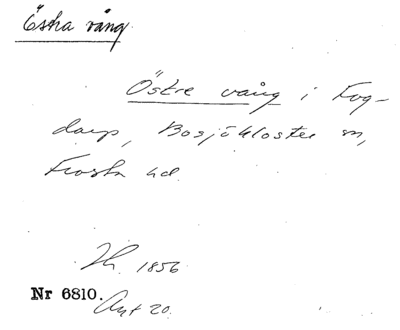 Östra vång.
Östre vång i Fog-
darp, Bosjökloster sn,
Frosta hd
Th. 1856
Nr 6810.
Akt 20.